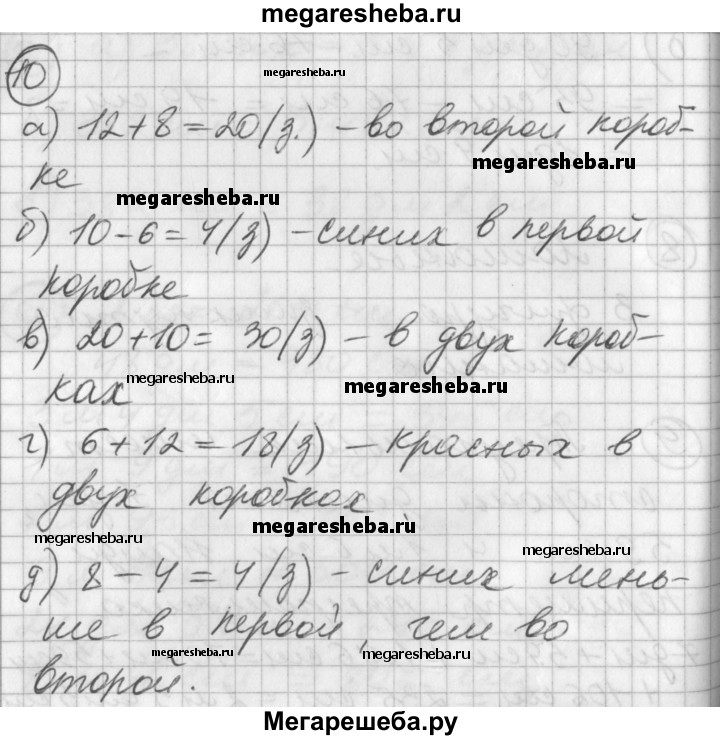 megaresheba.ru
10
megaresheba.ru
а) 12+8=20(з.) – во второй короб-
megaresheba.ru
ке
megaresheba.ru
б) 10–6=4(з) – синих в первой
коробке
в) 20+10= 30(з) – в двух короб-
megaresheba.ru
megaresheba.ru
ках
г) 6+12=18(з) – красных в
двух коробках
megaresheba.ru
megaresheba.ru
megaresheba.ru
д) 8–4=4(з) – синих мень-
ше в первой, чем во
megaresheba.ru
megaresheba.ru
второй.
Мегарешеба.ру